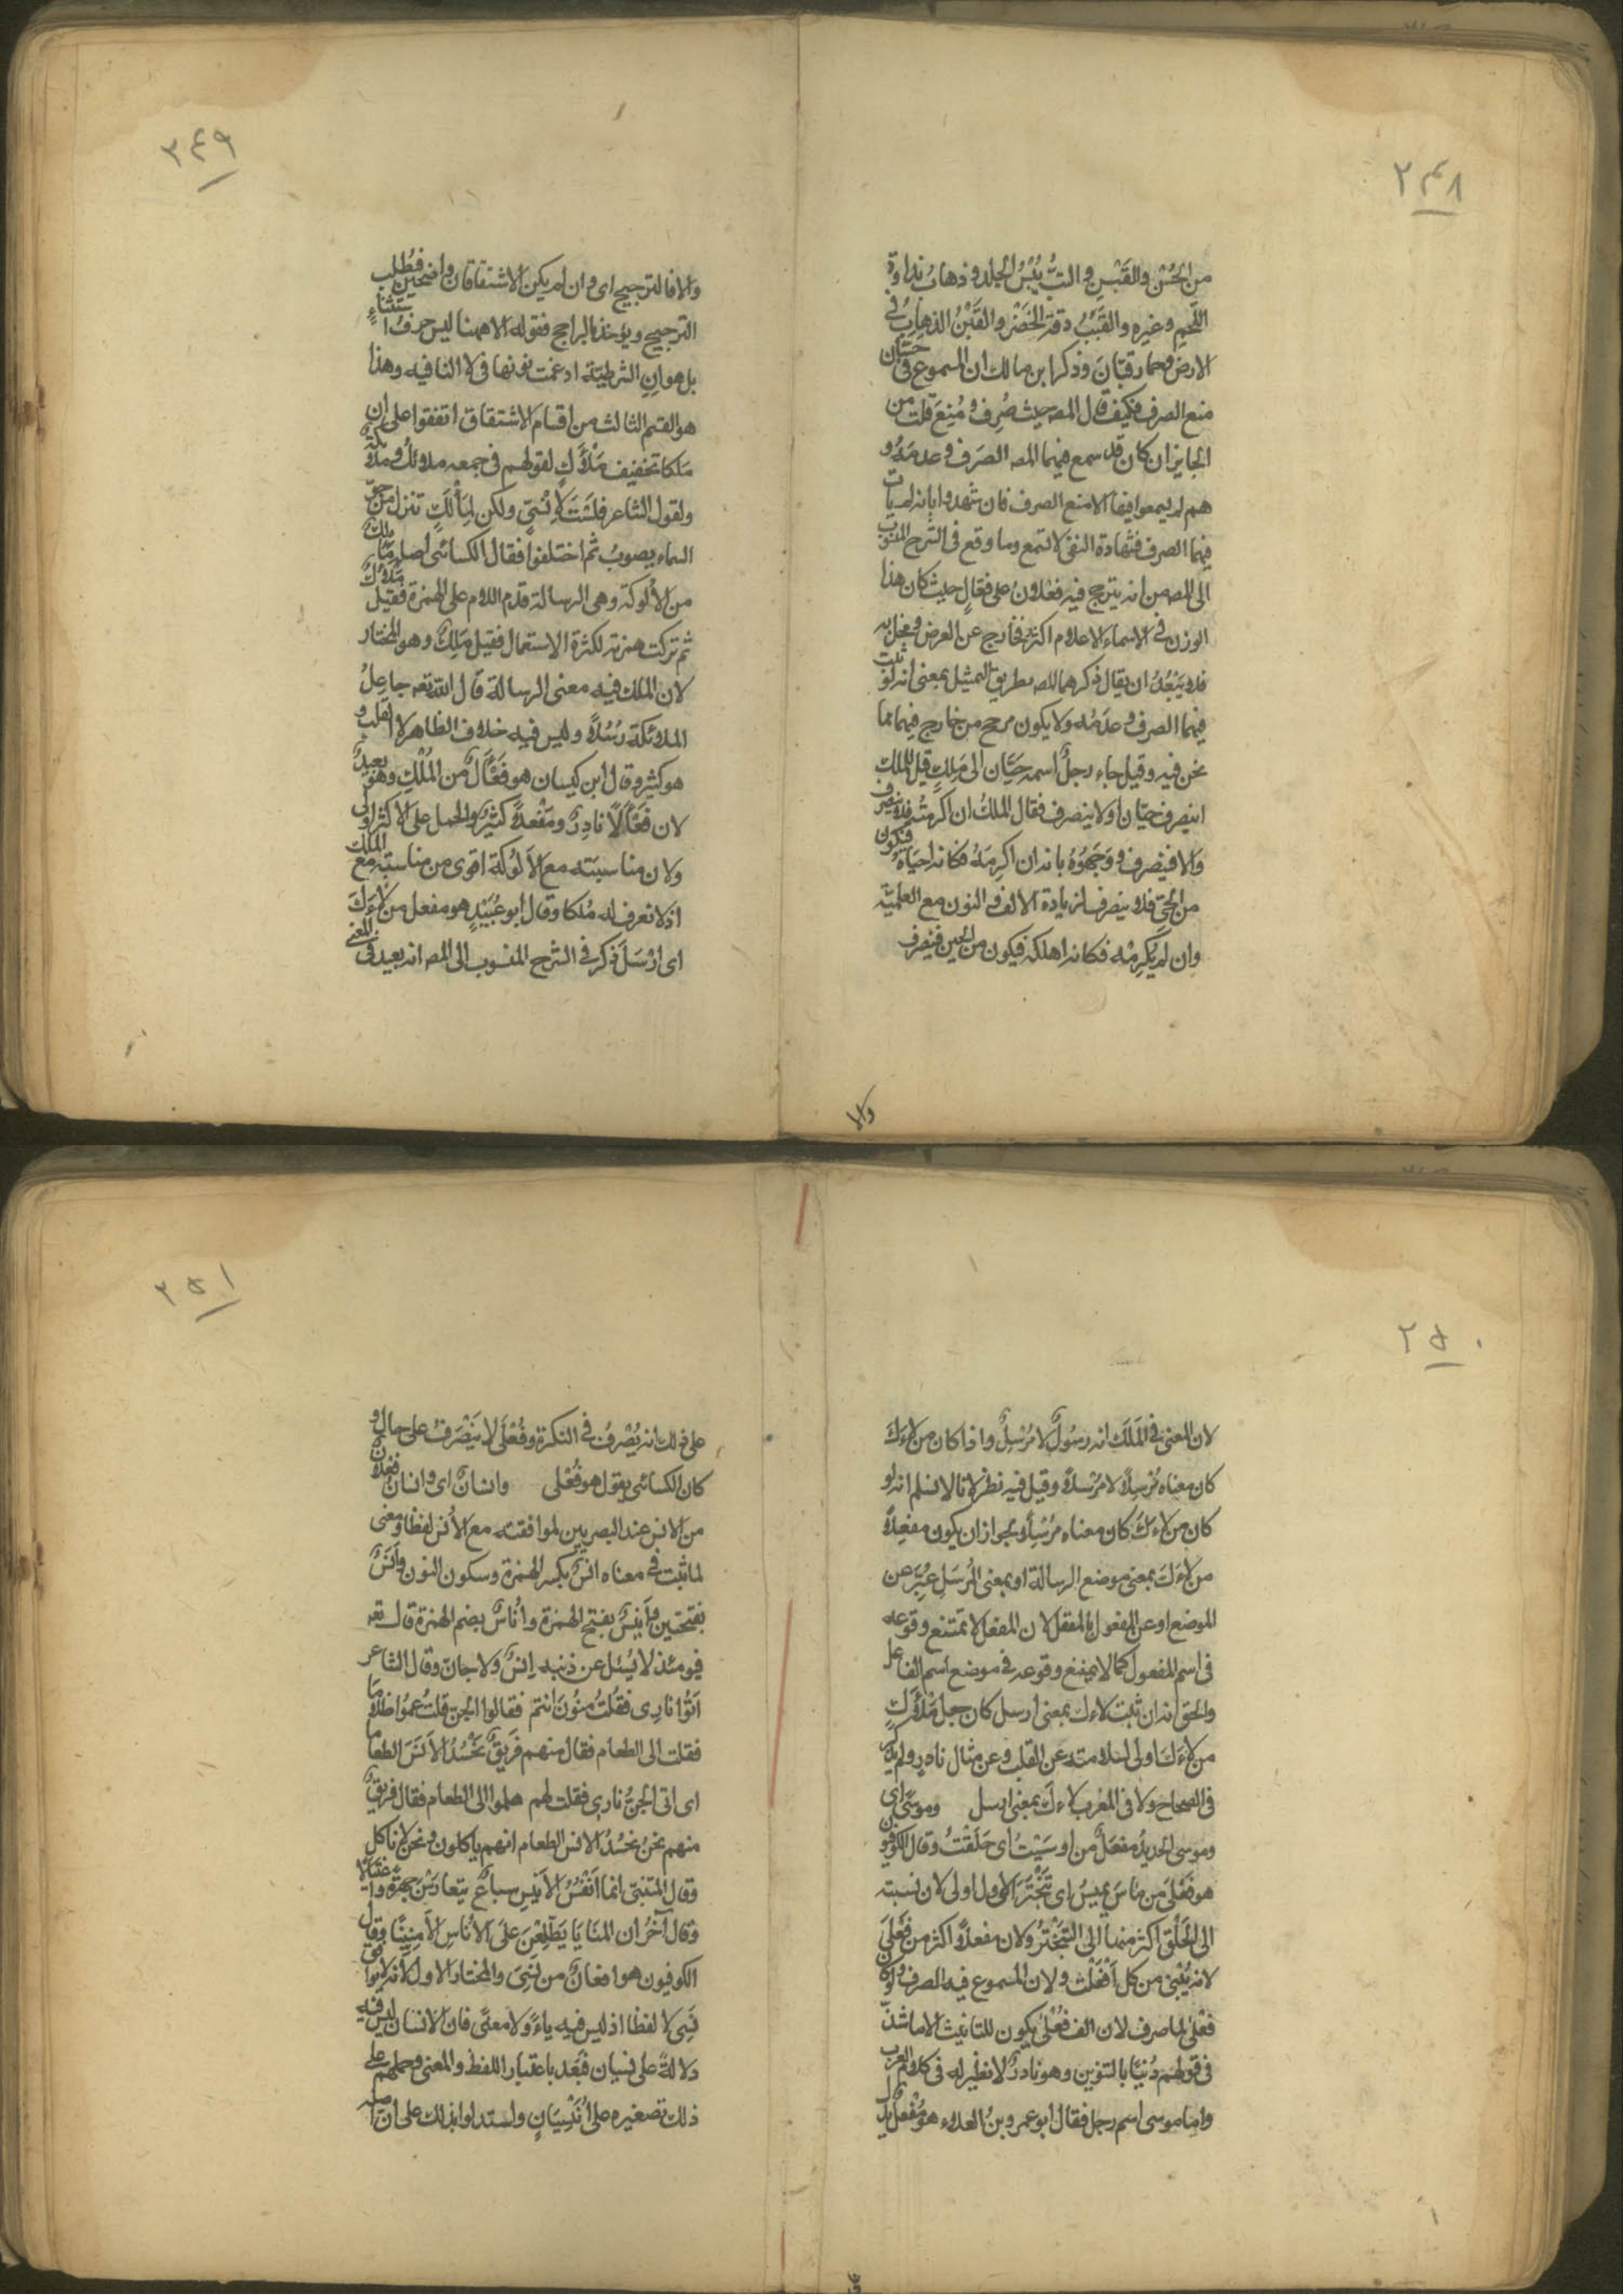 ٢٤٨
من الحُسْن والقَبْسِ والتبُّ يُبْسُ الجلد وذهاب نداوة
اللحم وغيره والقَبَبُ دقة الخصر والقَبْنُ الذهاب في
الارض وحمار قبّانَ وذكر ابن مالك ان المسموع في حسّان
منع الصرف فكيف قال المصـ حيث صُرِف و مُنِعَ قلت من
الجايز ان كان قد سمع فيهما المصـ الصَرف وعدمَهُ و
هم لم يسمعوا فيها الا منع الصرف فان شهدوا بانه لم يات
فيهما الصرف فشهادة النفى لا تسمع وما وقع في الشرح المنسوب
الى المصـ من انه يترجح فيه فعلان على فعّالٍ حيث كان هذا
الوزن في الاسماء الاعلام اكثر فخارج عن الغرض ومخل به
فلا يَبْعُدُ ان يقال ذكرهما المصـ بطريق التمثيل بمعنى انه لو ثبت
فيهما الصرف وعدَمُه ولا يكون مرجح من خارج فيهما مما
نحن فيه وقيل جاء رجلٌ اسمه حَيّان الى مَلِكٍ قيل للملك
اينصرف حيّان او لا ينصرف فقال الملكُ ان اكرمتُه فلا ينصرف
والا فينصرف ووَجَّهُوُهُ بانه ان اكرمَهُ فكانه احيَاهُ فيكون
من الحىّ فلا ينصرف لزيادة الالف والنون مع العلمية
وان لم يُكرِمْه فكانه اهلكه فيكون من الحين فينصرف
والا
٣٤٩
والا فالترجيح اى وان لم يكن الاشتقاقان واضحين فيُطلب
الترجيح ويؤخذ بالراجح فقوله الا ههنا ليس حرفُ استثناءٍ
بل هو انِ الشرطيّة ادغمت نونها فى لا النافيه وهذا
هو القسم الثالث من اقسام الاشتقاق اتفقوا على ان
مَلَكا تخفيف مَلْأَكٍ لقولهم فى جمعه ملائك وملائكة
ولقول الشاعر فلَسْتَ لِإنْسِيّ ولكن لِمَلْأَكٍ تنزل من جوّ
السماء يصوبُ ثم اختلفوا فقال الكسائى اصله مَأْلَكٌ
من الأَلُوكة وهى الرسالة قدم اللام على الهمزة فقيل مَلْأَكٌ
ثم تركت همزته لكثرة الاستعمال فقيل مَلَكٌ وهو المختار
لان الملك فيه معنى الرسالة قال الله تعـ جاعِلُ
الملائكة رُسُلًا وليس فيه خلاف الظاهر الا القلب و
هو كثير وقال ابن كيسان هو فَعْأَلٌ من المُلْكِ وهو بعيدٌ
لان فَعْأَلًا نادرٌ ومَفْعلًا كثيرٌ والحمل على الاكثر اولى
ولان مناسبَته مع الأَلوُكة اقوى من مناسبته مع الملك
اذ لا نعرف له مُلكا وقال ابو عُبَيْدٍ هو مفعل من لَاءَكَ
اى ارْسَلَ ذكر فى الشرح المنسوب الى المصـ انه بعيد فى المعنى
٢٥٠
لان المعنى في المَلَكَ انه رسُولٌ لا مُرْسِلٌ واذا كان من لَاءَكَ
كان معناه مُرسِلًا لا مُرْسَلًا وقيل فيه نظر لانا لا نسلم انه لو
كان من لَاءَكَ كان معناه مُرْسِلًا لجواز ان يكون مفعلًا
من لَاءَكَ بمعنى موضع الرسالة او بمعنى المُرسَل عُبِّرَ عن
الموضع او عن المفعول بالمفعل لان المفعل لا يمتنع وقوعه
فى اسم المفعول كما لا يمتنع وقوعه فى موضع اسم الفاعل
والحق انه ان ثبت لاءك بمعنى ارسل كان جعل مَلْأَكٍ
من لَاءَكَ اولى لسلامته عن القلب وعن مثال نادر ولم يذكر
فى الصحاح ولا فى المغرب لاءكَ بمعنى ارسل وموسًى اى
وموسى الحديدُ مفعَلٌ من اوسَيْتُ اى حَلَقْتُ وقال الكوفيون
هو فعلى من مَاسَ يميسُ اى تَبَخْتَرَ الاول اولى لان نسبته
الى الحَلْق اكثر منها الى التَبَخْتُرْ ولان مفعلًا اكثر من فُعْلَى
لانه يُبْنىَ من كل اَفْعَلْتُ ولان المسموع فيه الصرف ولو كان
فعْلى لما صرف لان الف فُعْلَى يكون للتانيث الا ما شذّ
فى قولهم دُنْيًا بالتنوين وهو نادرٌ لا نظير له فى كلام العرب
واما موسى اسم رجل فقال ابو عمرو بنُ العلاء هو مُفْعل يدل
٢٥١
على ذلك انه يُصْرفُ في النكرة وفُعْلَى لا يَنْصَرفُ على حالٍ و
كان الكسائى يقول هو فُعْلى وانسانٌ اى وانسانٌ فعلانٌ
من الانس عند البصريين لموافقته مع الأُنس لفظا ومعنى
لما ثبت فى معناه انسٌ بكسر الهمزة وسكون النون وأَنَسٌ
بفتحتين وأَنِيسٌ بفتح الهمزة وأُناسٌ بضم الهمزة قال تعـ
فيومئذ لا يُسئل عن ذنبه اِنسٌ ولا جان وقال الشاعر
اَتَوْا نارِى فقُلتُ منُونَ انتم فقالوا الجن قلتُ عِمُوا ظلامًا
فقلت الى الطعام فقال منهم فَرِيقٌ نَحْسُدُ الأَنَسَ الطعاما
اى اتى الجنُّ نارِى فقلت لهم هلموا الى الطعام فقال فريقٌ
منهم نحن نحسُدُ الانس الطعام انهم ياكلون ونحن لا ناكل
وقال المتنبىّ انما اَنْفُسُ الأَنِيسِ سباعٌ يتفارَسْنَ جهرةً واغتيالًا
وقال آخَرُ ان المنَايَا يَطَّلِعْنَ عَلَى الأُنَاسِ الآمِنِينَا وقال
الكوفيون هو افعانٌ من نَسِىَ والمختار الاول لانه لا يوافق
نَسِىَ لا لفظا اذ ليس فيه ياءٌ ولا معنًى فان الانسان ليس فيه
دلالةٌ على نسيان فبَعُد باعتبار اللفظ والمعنى وحملهم على
ذلك تصغيره على أُنَيْسِيَانٍ واستدلوا بذلك على ان اصله